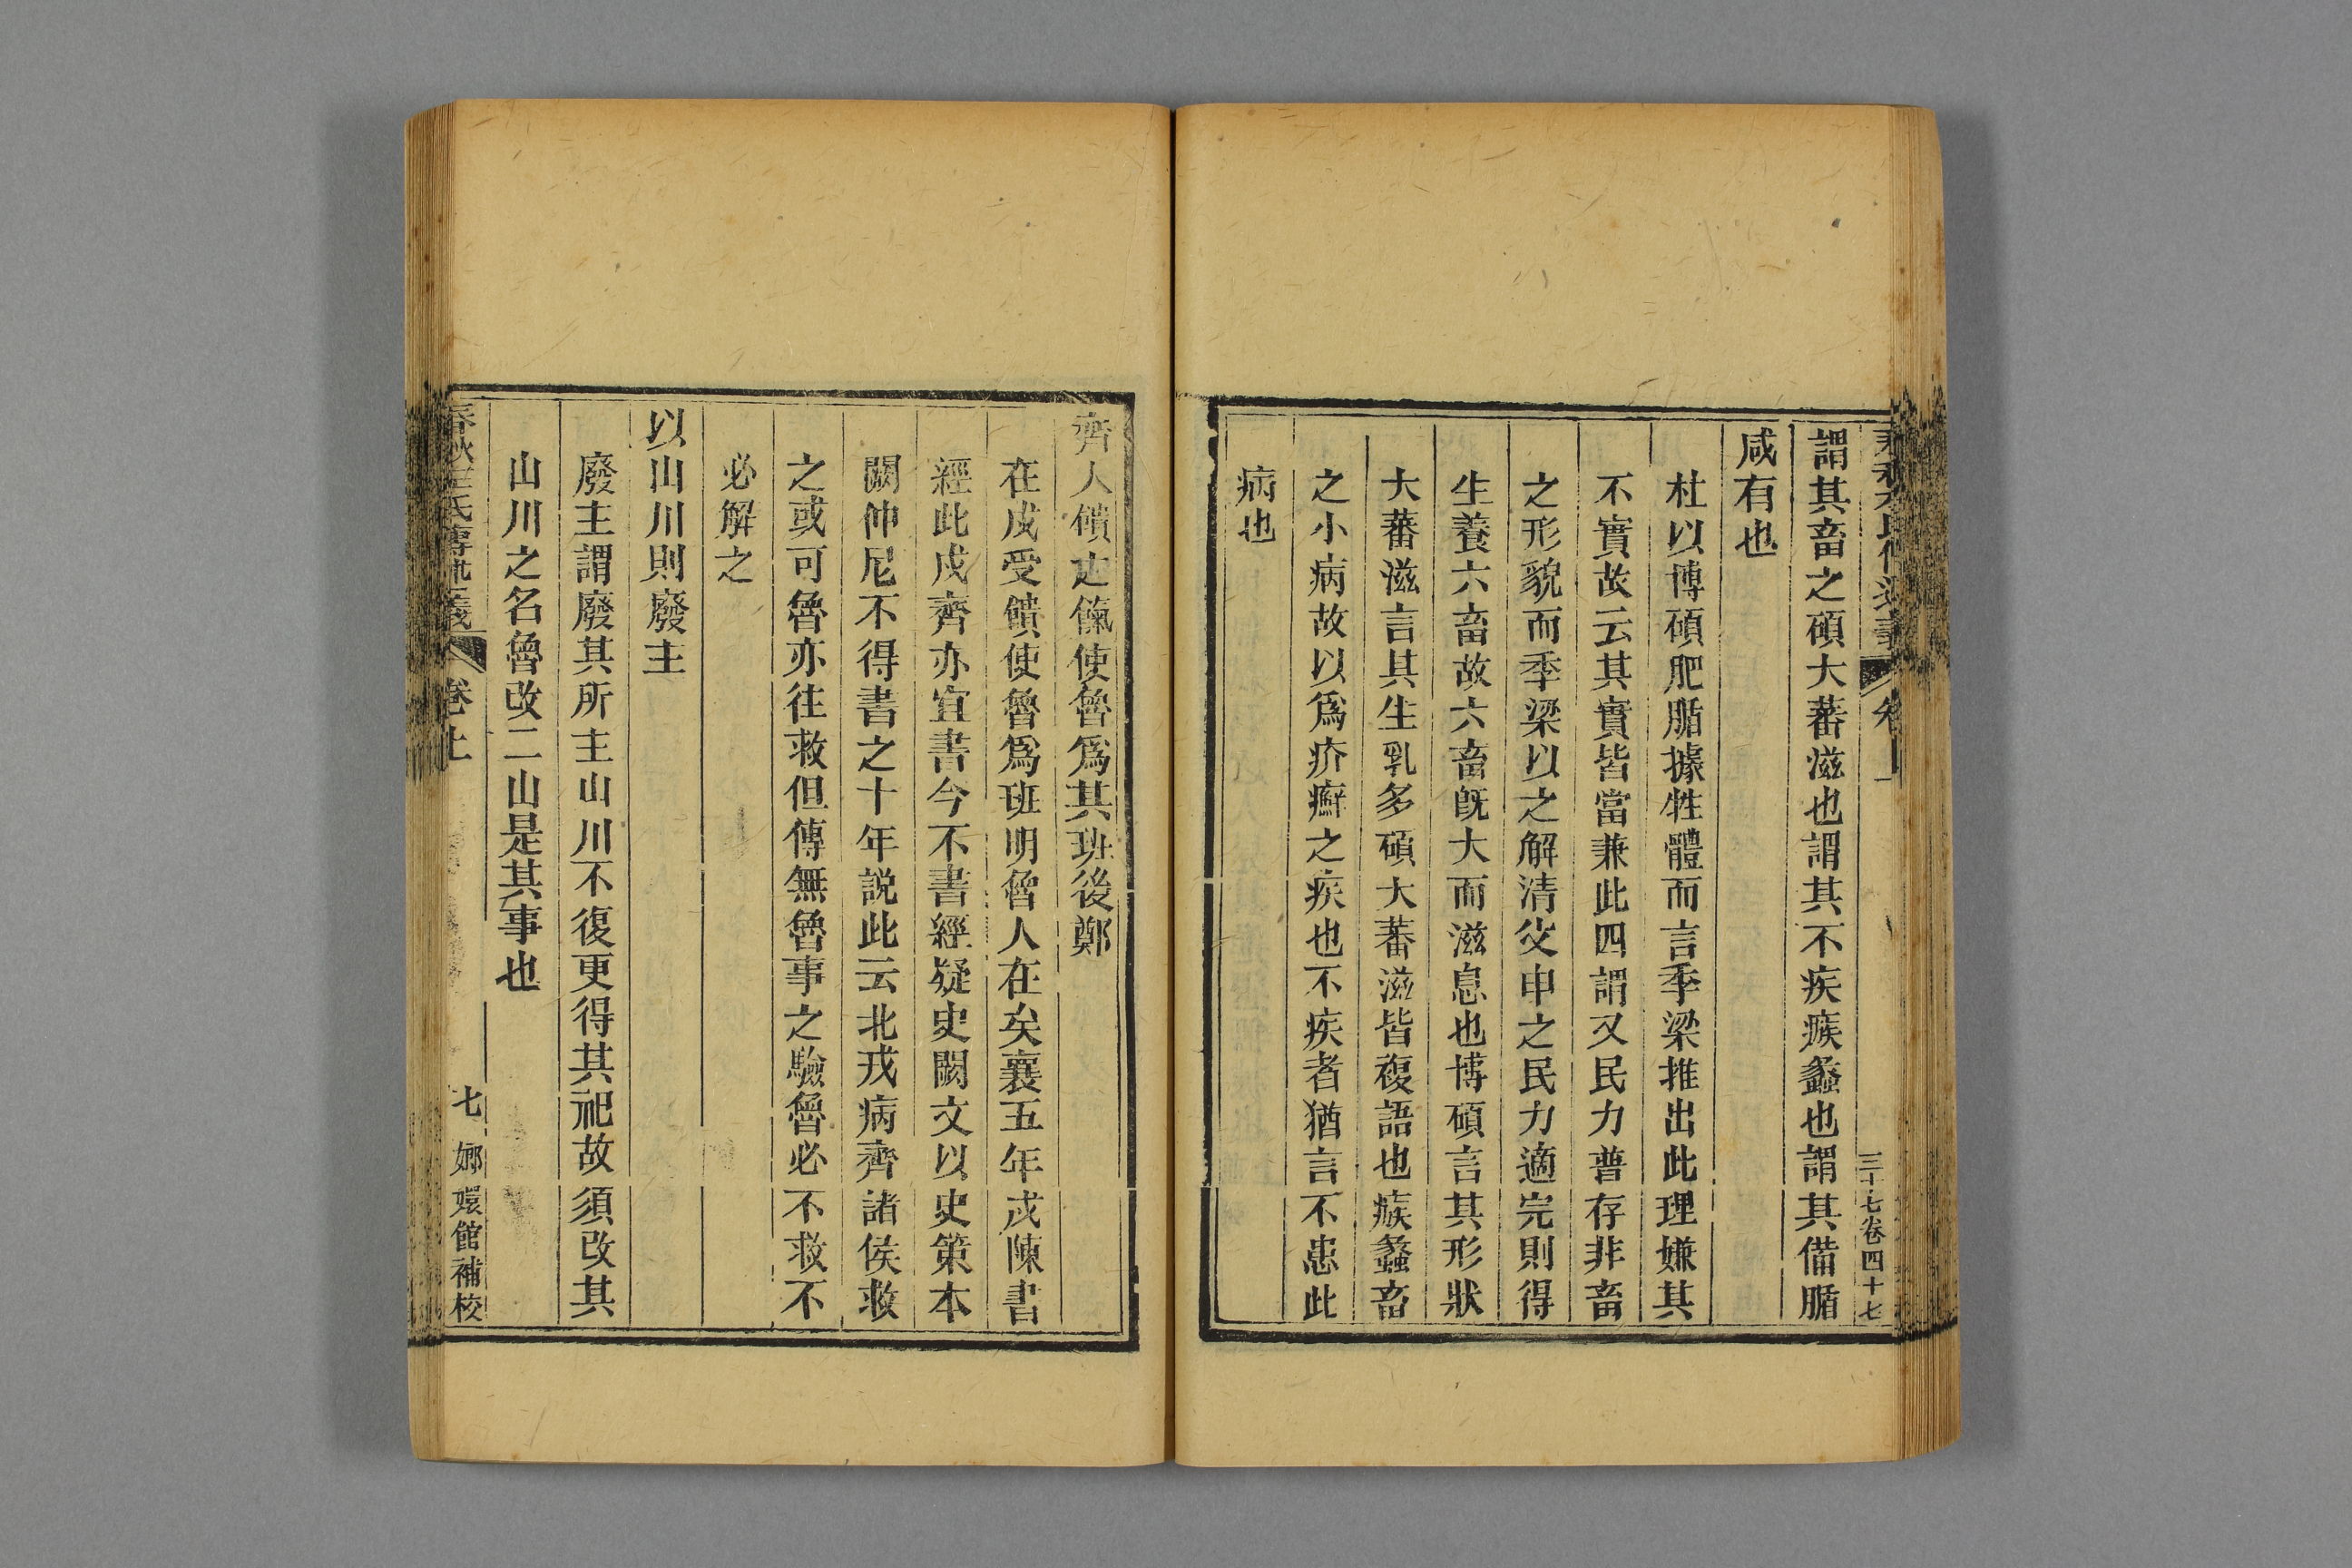 春秋左氏傳述義
卷上
三十七卷四十七
謂其畜之碩大蕃滋也謂其不疾瘯蠡也謂其備腯
咸有也
杜以博碩肥腯據牲體而言季梁推出此理嫌其
不實故云其實皆當兼此四謂又民力普存非畜
之形貌而季梁以之解清父申之民力適完則得
生養六畜故六畜既大而滋息也博碩言其形狀
大蕃滋言其生乳多碩大蕃滋皆複語也瘯蠡畜
之小病故以爲疥癬之疾也不疾者猶言不患此
病也
齊人饋之餼使魯爲其班後鄭
在戍受饋使魯爲班明魯人在矣襄五年戍陳書
經此戍齊亦宜書今不書經疑史闕文以史策本
闕仲尼不得書之十年說此云北戎病齊諸侯救
之或可魯亦往救但傳無魯事之驗魯必不救不
必解之
以山川則廢主
廢主謂廢其所主山川不復更得其祀故須改其
山川之名魯改二山是其事也
春秋左氏傳述義
卷上
七
嫏嬛館補校